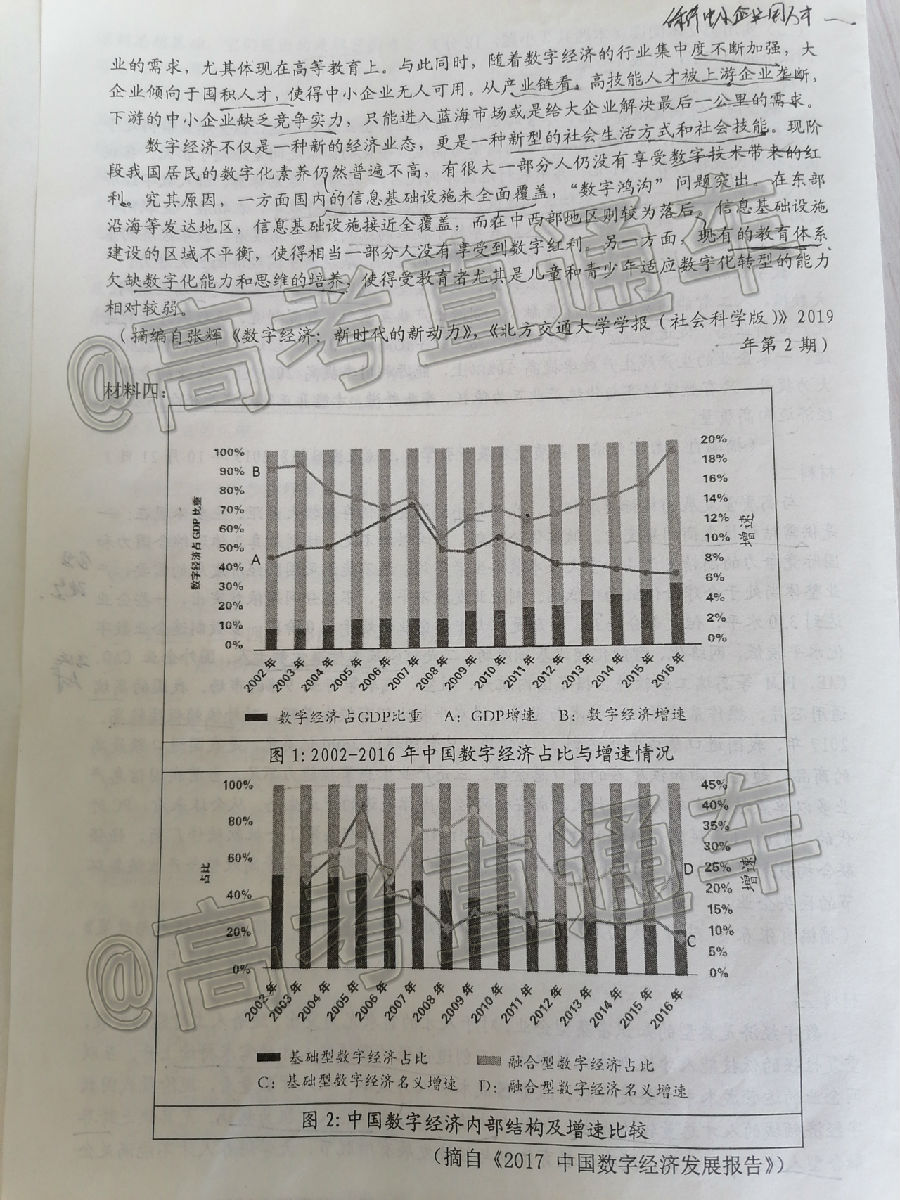 中小企业
业的需求，尤其体现在高等教育上。与此同时，随着数字经济的行业集中度不断加强，大
企业倾向于囤积人才，使得中小企业无人可用。从产业链看，高技能人才被上游企业垄断，
下游的中小企业缺乏竞争实力，只能进入蓝海市场或是给大企业解决最后一公里的需求。
数字经济不仅是一种新的经济业态，更是一种新型的社会生活方式和社会技能。现阶
段我国居民的数字化素养仍然普遍不高，有很大一部分人仍没有享受数字技术带来的红
利。究其原因，一方面国内的信息基础设施未全面覆盖，“数字鸿沟”问题突出。在东部
沿海等发达地区，信息基础设施接近全覆盖，而在中西部地区则较为落后。信息基础设施
建设的区域不平衡，使得相当一部分人没有享受到数字红利。另一方面，现有的教育体系
欠缺数字化能力和思维的培养，使得受教育者尤其是儿童和青少年适应数字化转型的能力
相对较弱。
（摘编自张辉《数字经济：新时代的新动力》，《北方交通大学学报（社会科学版）》2019
年第2期）
材料四：
100%
90%
80%
70%
60%
50%
40%
30%
20%
10%
0%
数字经济占GDP比重
B
A
20%
18%
16%
14%
12%
10%
8%
6%
4%
2%
0%
增速
2002年 2003年 2004年 2005年 2006年 2007年 2008年 2009年 2010年 2011年 2012年 2013年 2014年 2015年 2016年
数字经济占GDP比重 A：GDP增速 B：数字经济增速
图1：2002-2016年中国数字经济占比与增速情况
100%
80%
60%
40%
20%
0%
占比
45%
40%
35%
30%
25%
20%
15%
10%
5%
0%
增速
D
C
2002年 2003年 2004年 2005年 2006年 2007年 2008年 2009年 2010年 2011年 2012年 2013年 2014年 2015年 2016年
基础型数字经济占比 融合型数字经济占比
C：基础型数字经济名义增速 D：融合型数字经济名义增速
图2：中国数字经济内部结构及增速比较
（摘自《2017 中国数字经济发展报告》）
@高考直通车
@高考直通车